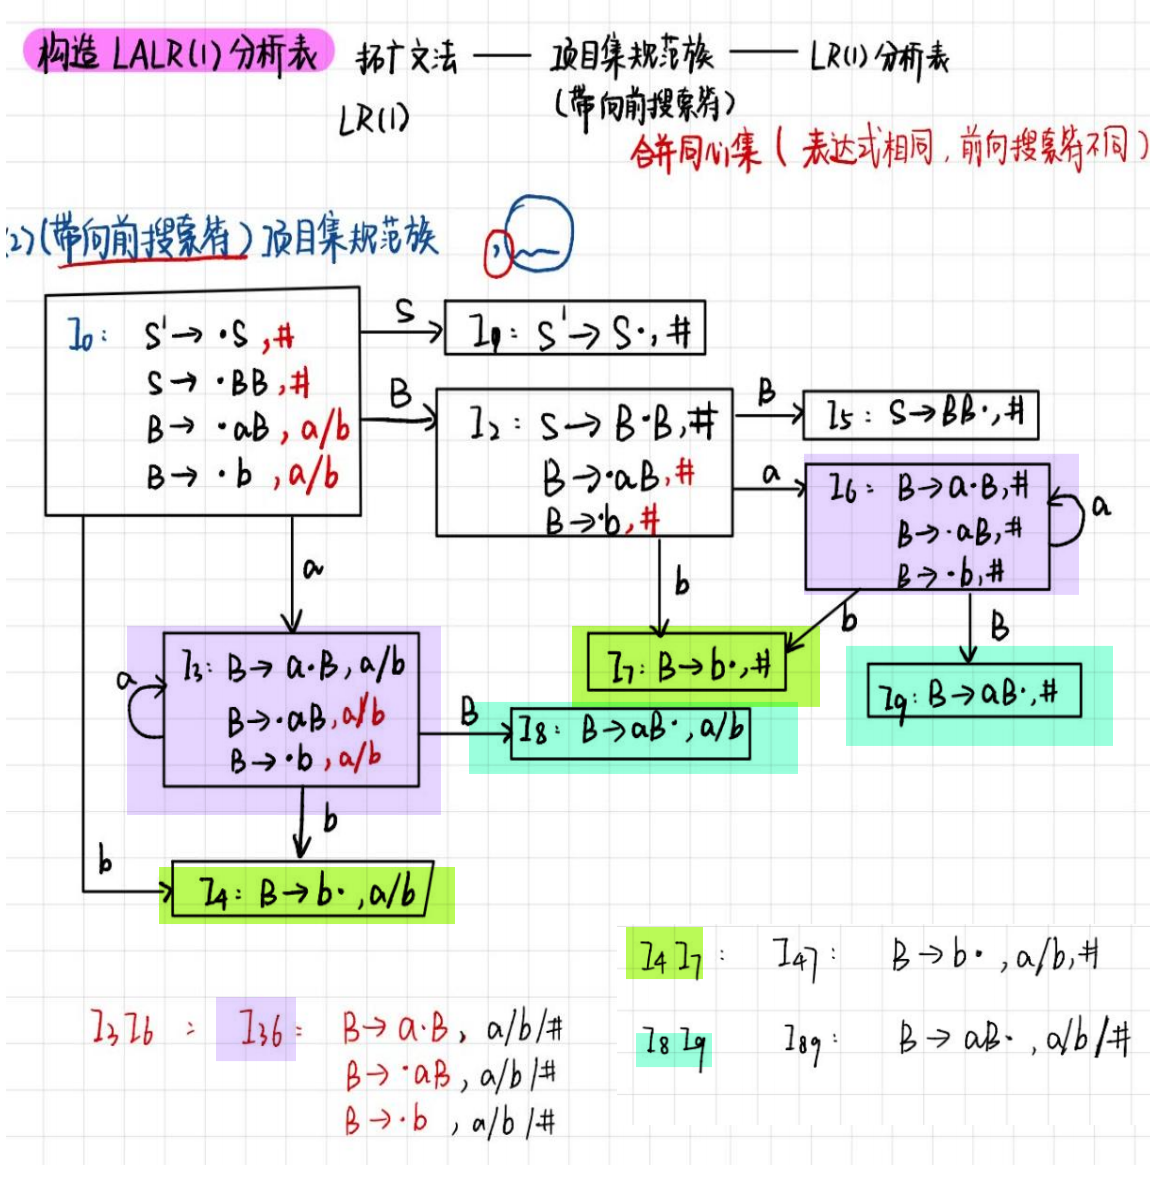 构造 LALR(1) 分析表 拓广文法 —— 项目集规范族 —— LR(1) 分析表
LR(1) (带向前搜索符)
合并同心集 ( 表达式相同, 前向搜索符不同 )
(2) (带向前搜索符) 项目集规范族
I0: S' → ·S, #
S → ·BB, #
B → ·aB, a/b
B → ·b, a/b
S
I1: S' → S·, #
B
I2: S → B·B, #
B → ·aB, #
B → ·b, #
B
I5: S → BB·, #
a
I6: B → a·B, #
B → ·aB, #
B → ·b, #
a
a
b
b
B
I3: B → a·B, a/b
B → ·aB, a/b
B → ·b, a/b
a
I7: B → b·, #
I9: B → aB·, #
B
I8: B → aB·, a/b
b
b
I4: B → b·, a/b
I4 I7: I47: B → b·, a/b, #
I3 I6: I36: B → a·B, a/b/#
B → ·aB, a/b/#
B → ·b, a/b/#
I8 I9 I89: B → aB·, a/b/#